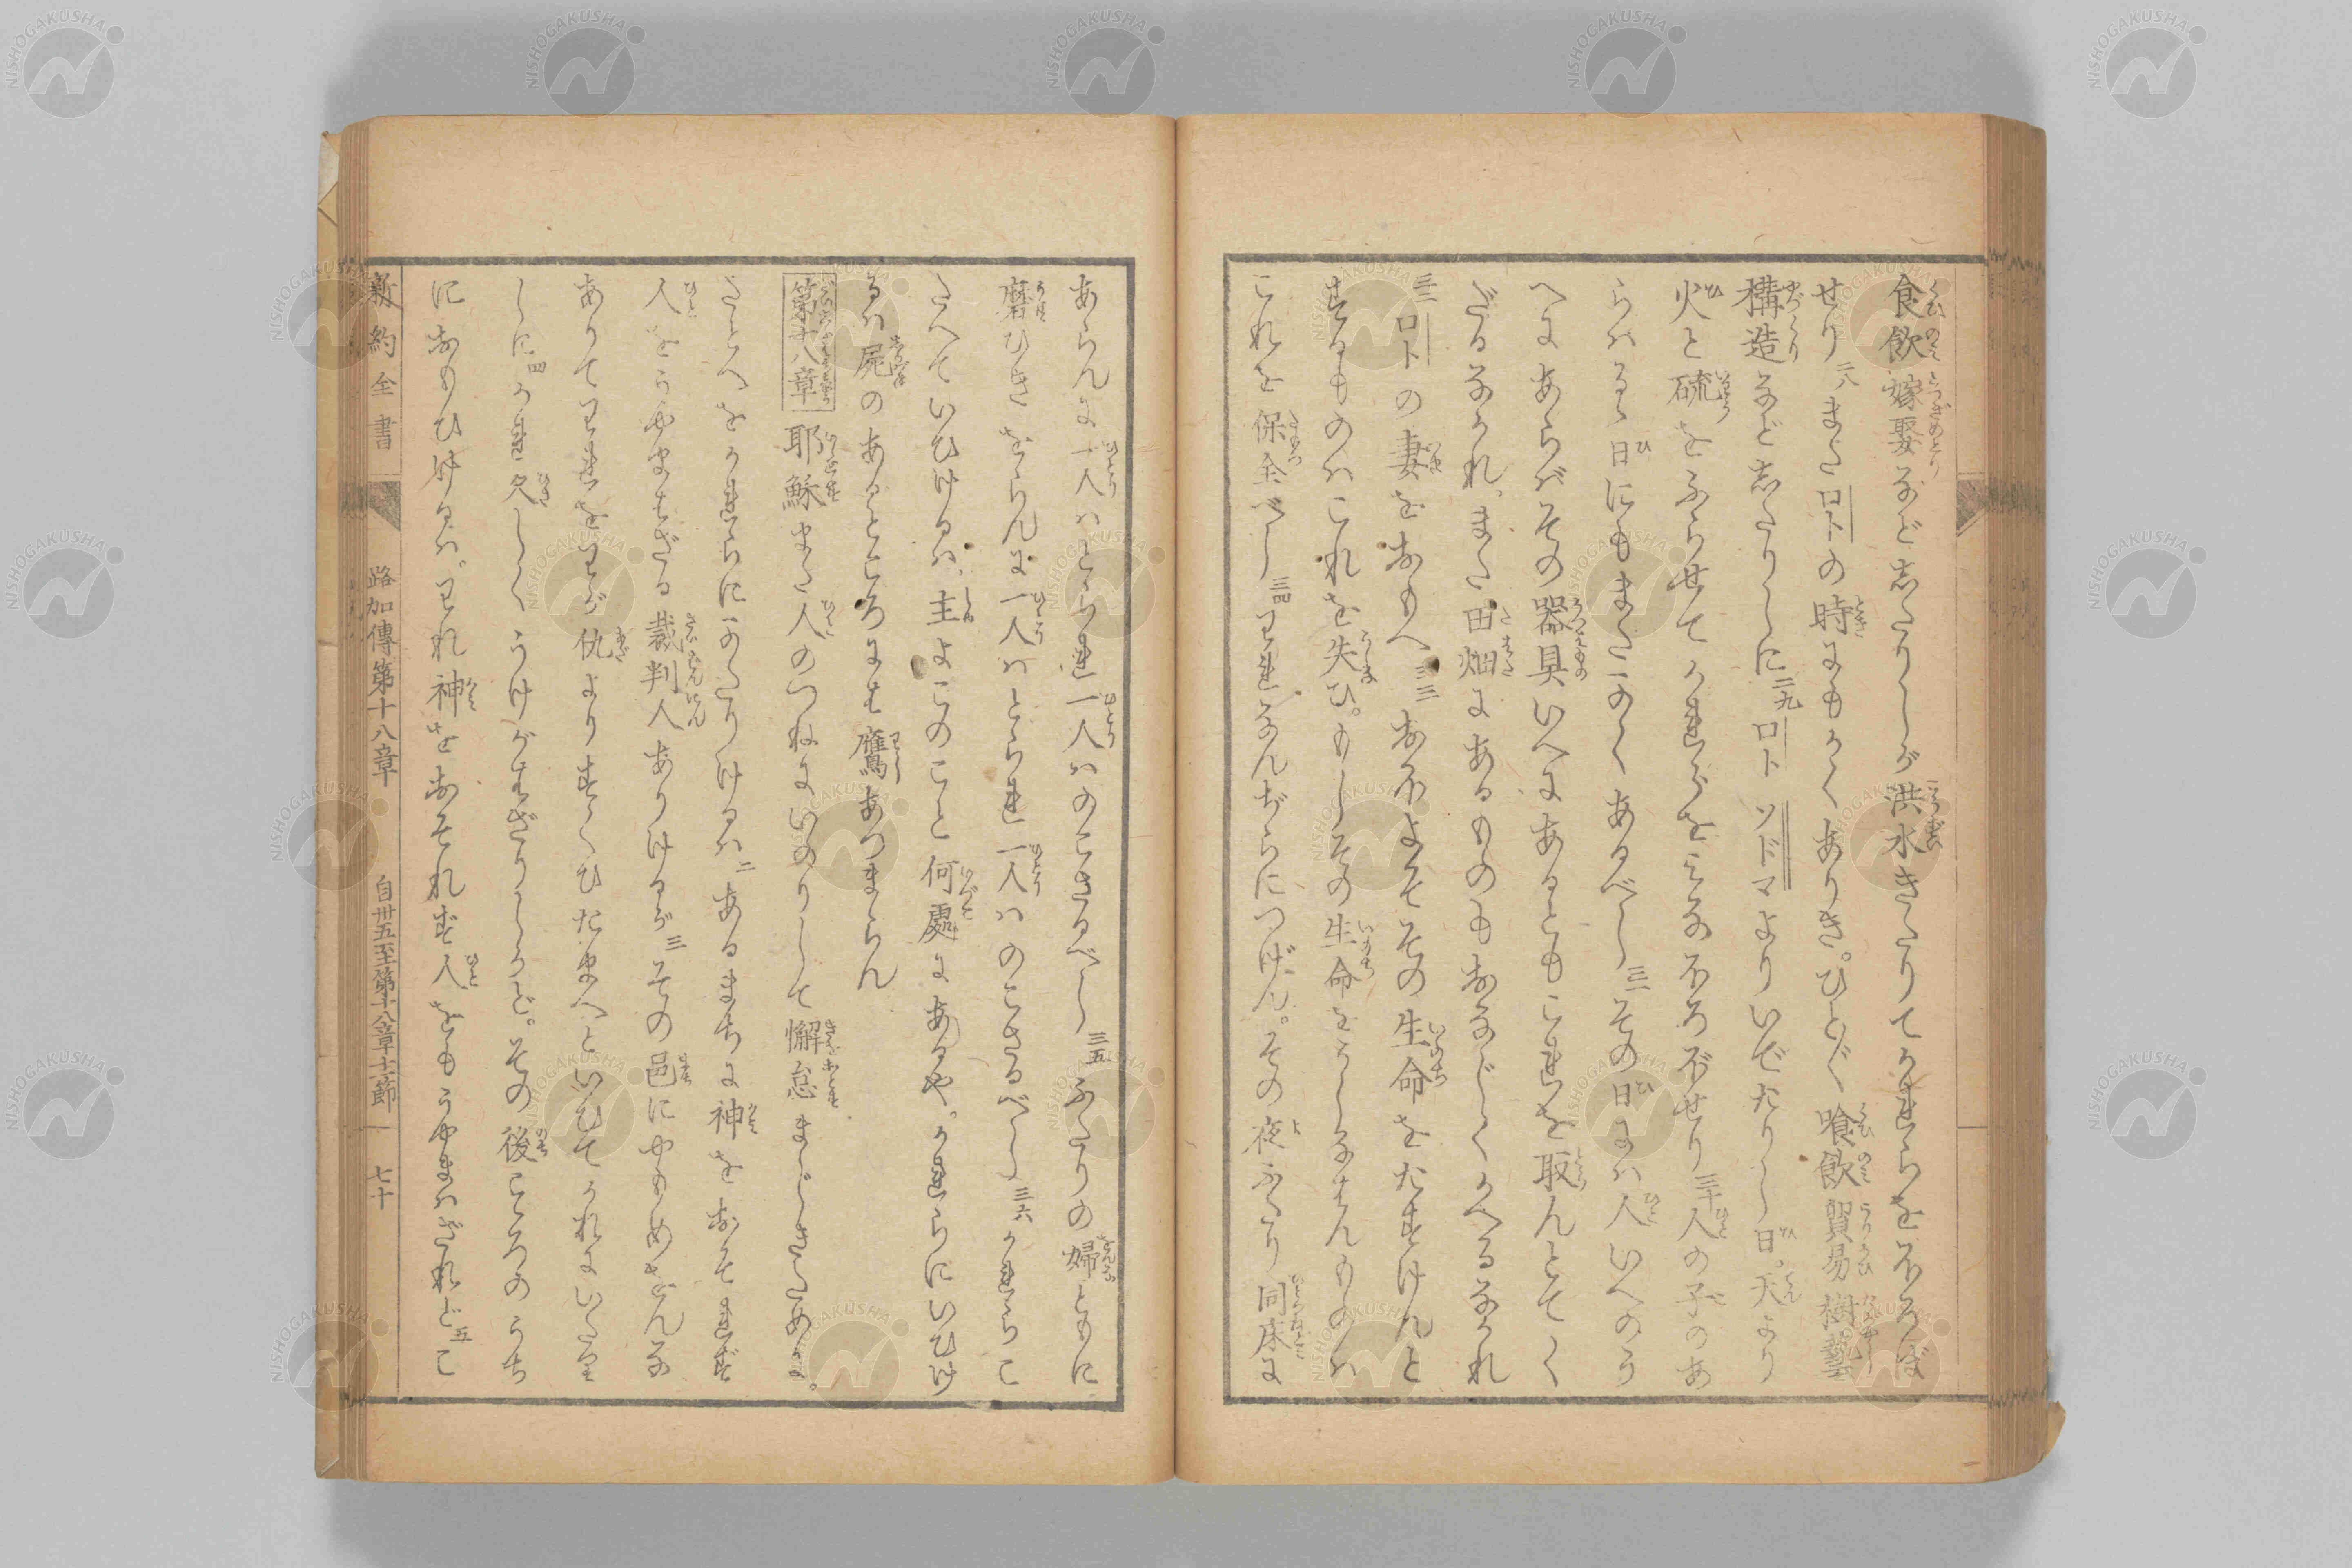 食飲嫁娶などしたりしが洪水きたりてかれらをほろぼ
せり二八またロトの時にもかくありき。ひとびく喰飲賀易樹藝
構造などしたりしに二九ロトソドマよりいでたりし日。天より
火と硫をふらせてかれらをみなほろぼせり三十人の子のあ
らはるゝ日にもまたかくあるべし三一その日には人いへのう
へにあらバその器具いへにあるともこれを取んとてく
だるなかれ、また田畑にあるものもおなじくかへるなかれ
三二ロトの妻をおもへ三三おほよそその生命をたすけんと
するものハこれを失ひ。もしその生命をうしなはんものハ
これを保全べし三四われなんぢらにつげん。その夜ふたり同床に
あらんに一人ハとられ一人ハのこさるべし三五ふたりの婦ともに
磨ひきをらんに一人ハとられ一人ハのこさるべし三六かれらこ
たへていひけるハ、主よこのこと何處にあるや。かれらにいひけ
るハ屍のあるところには鷹あつまらん
第十八章耶穌また人のつねにいのりして懈怠まじきために。
たとへをかれらにかたりけるハ二あるまちに神をおそれず
人をうやまはざる裁判人ありけるが三その邑にやもめをんな
ありてわれをわが仇よりすくひたまへといひてかれにいたり
しに四かれ久しくうけがはざりしかど。その後こころのうち
におもひけるハ。われ神をおそれず人をもうやまハざれど五こ
新約全書 路加傳第十八章 自卅五至第十八章十一節 七十
NISHOGAKUSHA